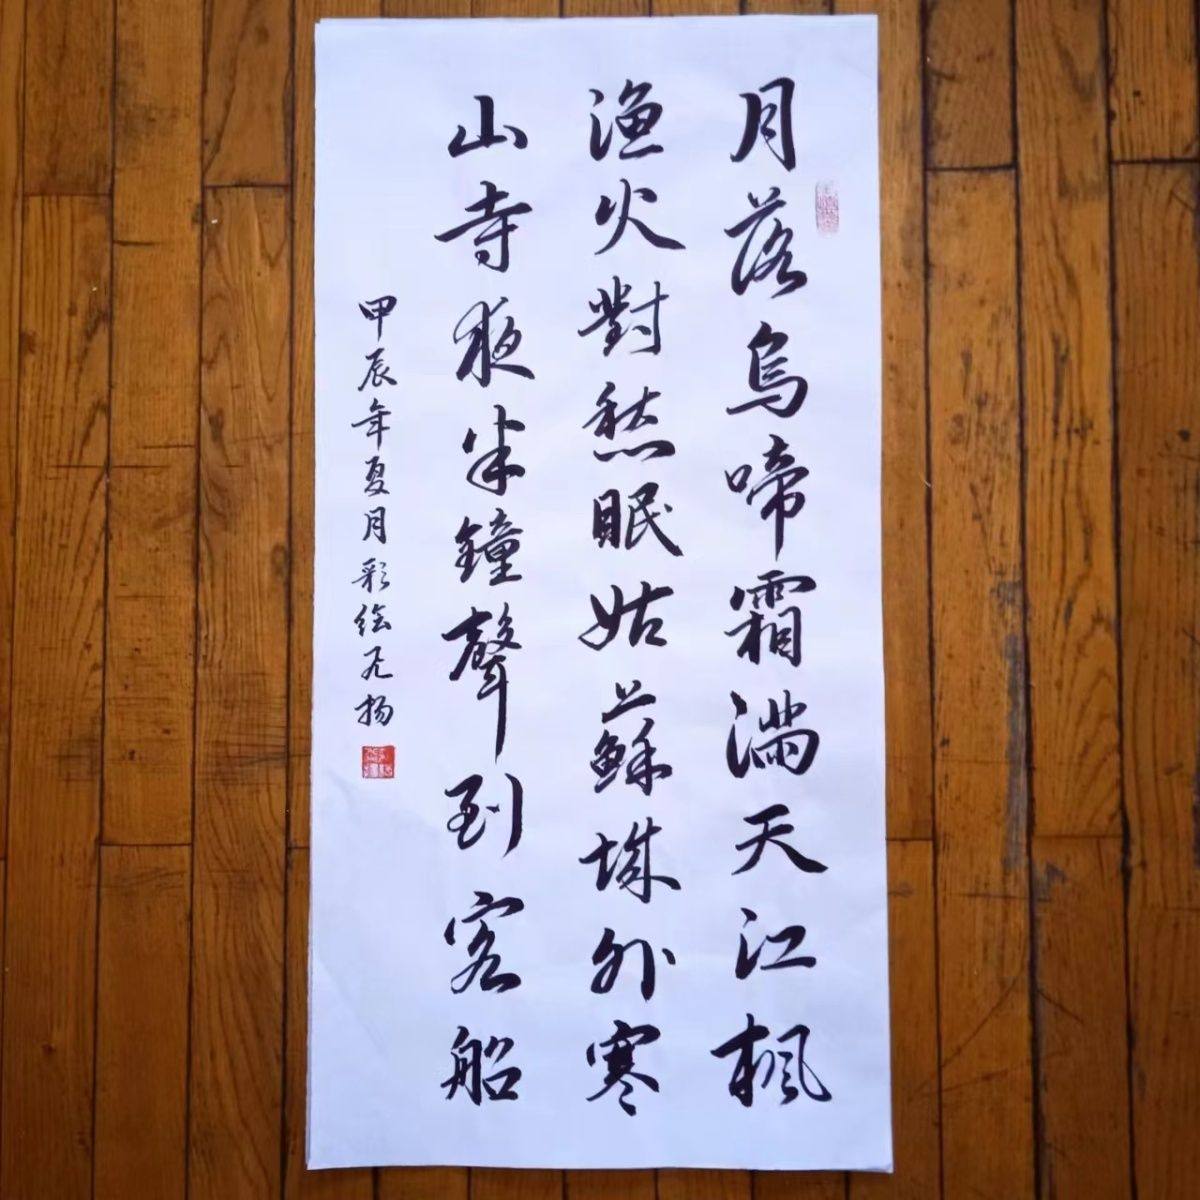 月落烏啼霜満天江楓
漁火對愁眠姑蘇城外寒
山寺夜半鐘聲到客船
甲辰年夏月彩绘飞扬